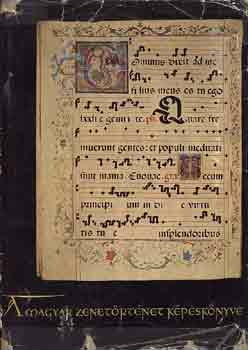 Dominus dixit ad me
fi lius meus es tu ego
hodi e genui te. ps. Quare fre
muerunt gentes: et populi meditati
sunt inania Euouae. gra. Tecum
principi um in di e virtu
tis tu e insplendoribus
A MAGYAR ZENETÖRTÉNET KÉPESKÖNYVE